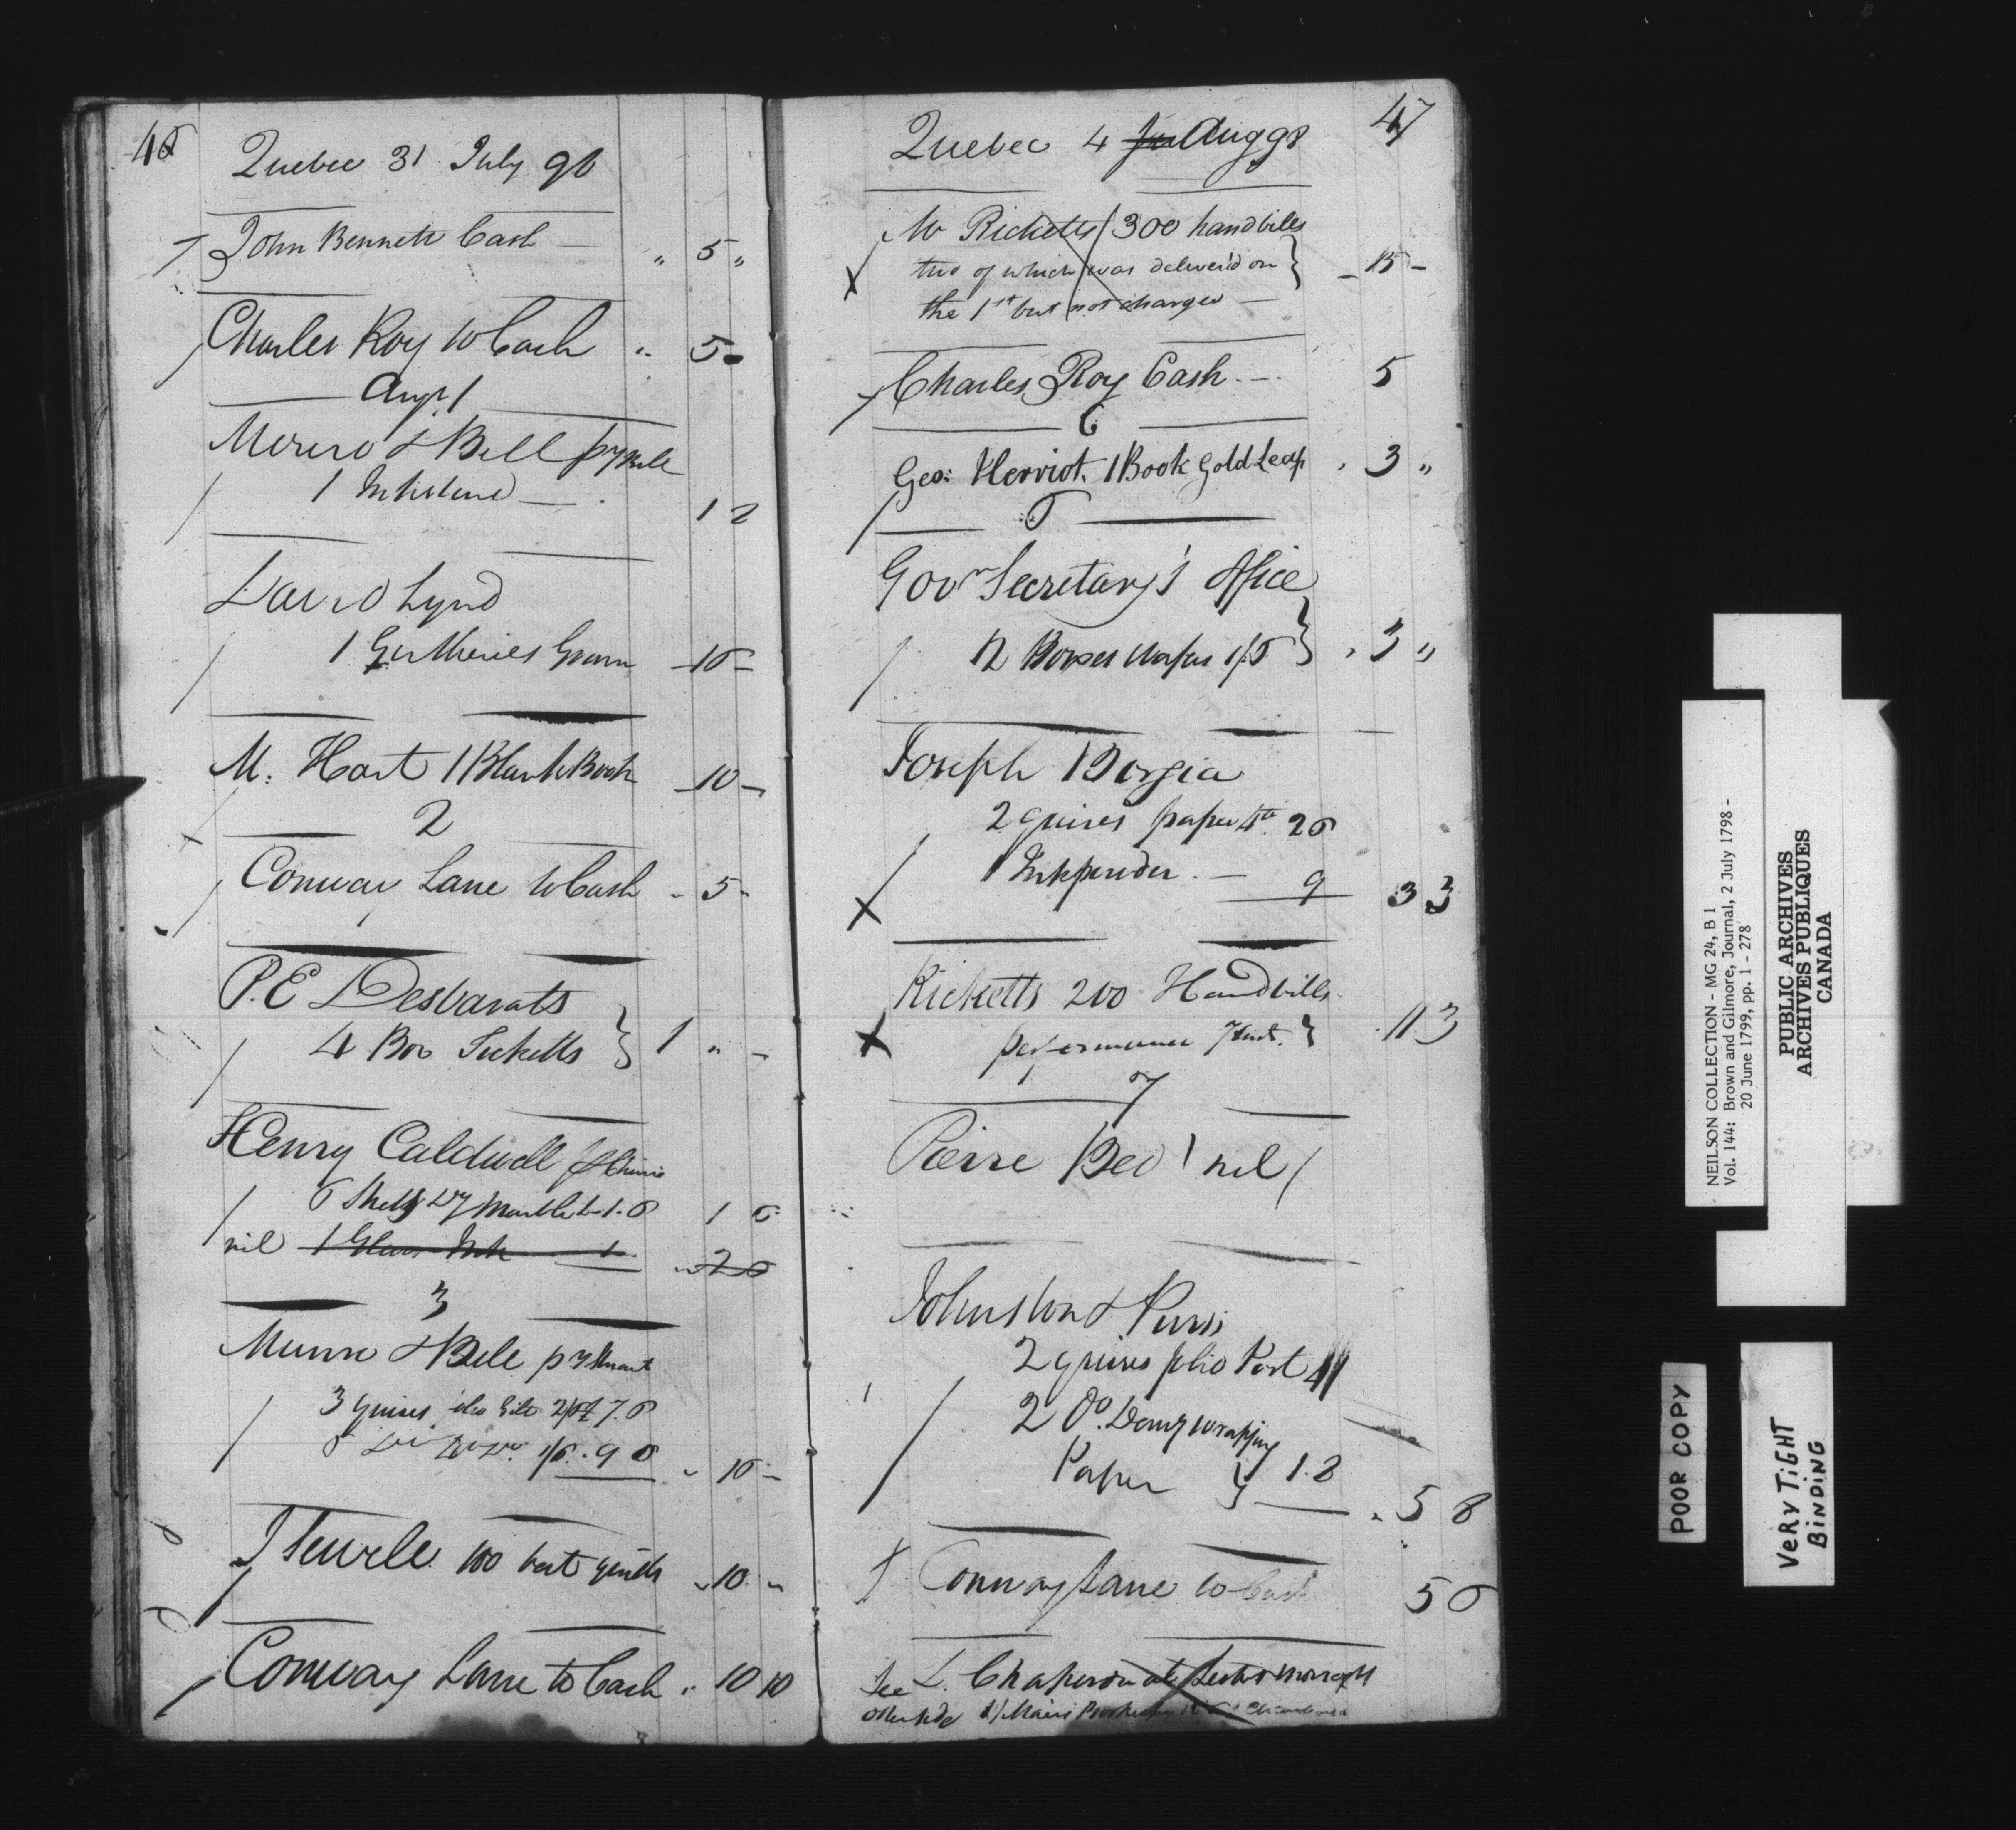 46
Quebec 31 July 98
John Bennett Cash — " 5 "
Charles Roy to Cash " 5 -
Augt 1
Munro & Bell pr
1 Inkstand — 1 2
David Lynd
1 Gutheries Gram - 16 -
M. Hart 1 Blank Book - 10 -
2
Conway Lane to Cash - 5 -
P. E Desbarats
4 Box Ticketts } 1 " -
Henry Caldwell
6 Sheets Dy Marble 1.6 1 6
nil 1 Glass Ink 1 2 6
3
Munro & Bell pr
3 Quires do Gilt 2/6 7.6
6 Do 1/6 . 9 " 16 -
100 best quills " 10 "
Conway Lane to Cash " 10 10
47
Quebec 4 Ju Aug 98
Mr Ricketts 300 handbills
two of which was deliver'd on } - 15 -
the 1st but not charged —
Charles Roy Cash 5
6
Geo: Herriot. 1 Book Gold Leaf " 3 "
6
Govr Secretary's Office
2 Boxes Wafers 1/6 } " 3 "
Joseph Borgia
2 quires paper 4to 2 6
1 Inkpowder — 9 3 3
Ricketts 200 Handbills
performance } 11 3
7
Pierre Bed nil
Johnston & Purss
2 quires folio Post 4
2 Do. Demy wrapping
Paper } 1.8 " 5 8
Conway Lane to Cash 5 6
See L. Chaperon
other side
NEILSON COLLECTION - MG 24, B 1
Vol. 144: Brown and Gilmore, Journal, 2 July 1798 -
20 June 1799, pp. 1 - 278
PUBLIC ARCHIVES
ARCHIVES PUBLIQUES
CANADA
POOR COPY
VERY TIGHT
BINDING